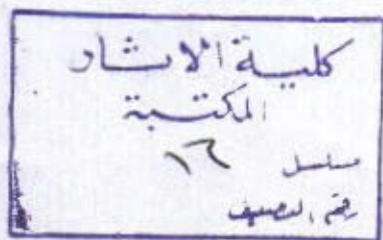 كلية الاثار
المكتبة
مسلسل ١٦
رقم التصنيف